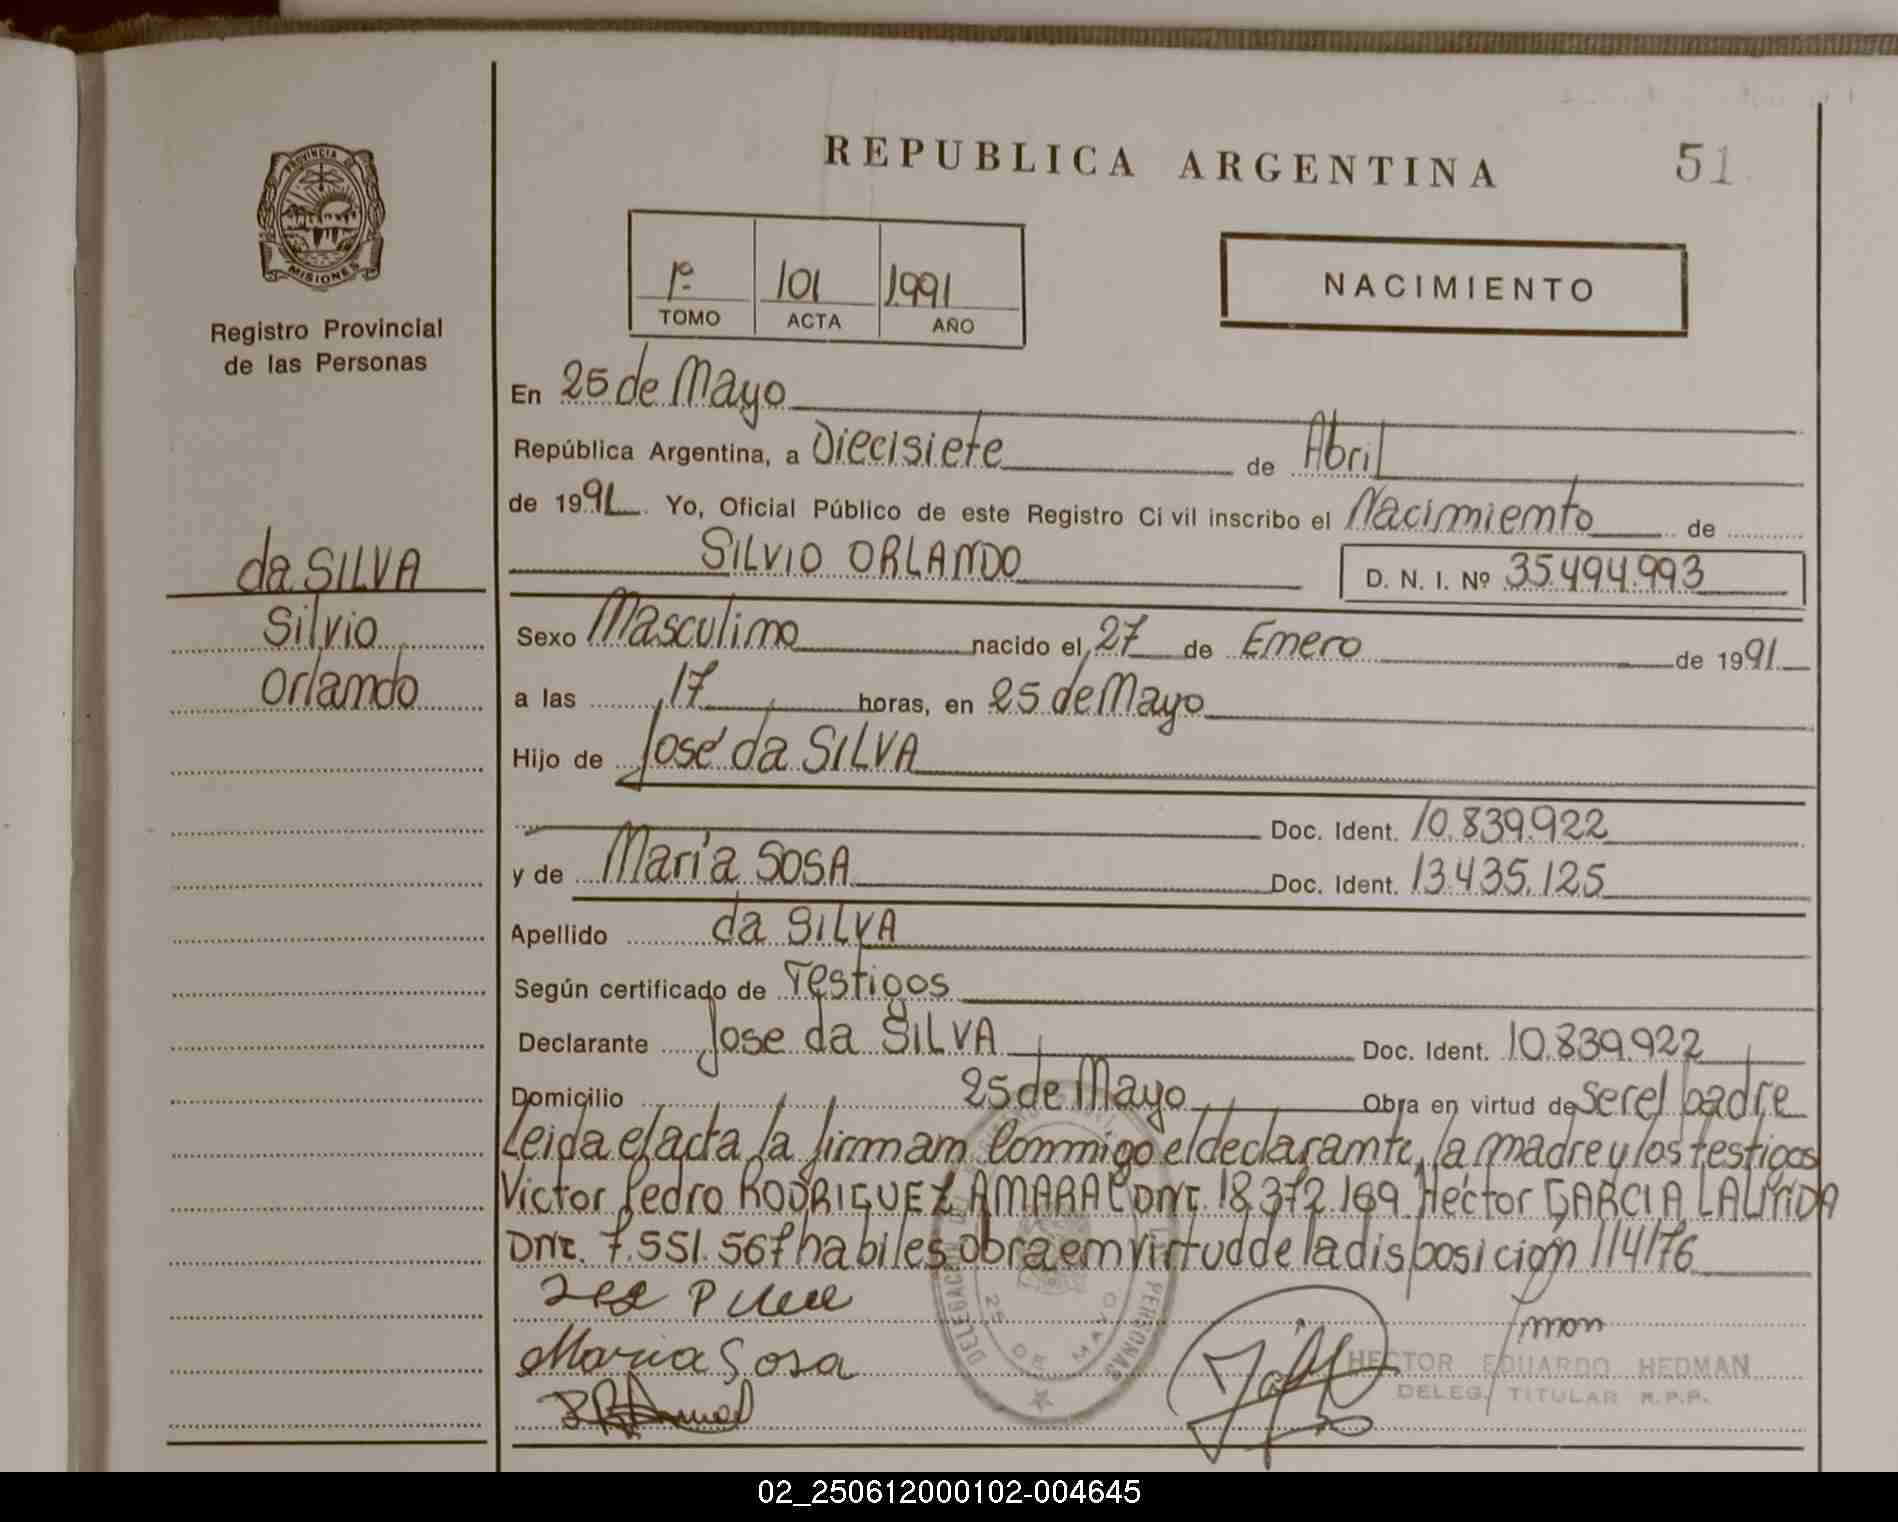 REPUBLICA ARGENTINA
51
PROVINCIA DE
MISIONES
Registro Provincial
de las Personas
1º 101 1991
TOMO ACTA AÑO
NACIMIENTO
En 25 de Mayo
República Argentina, a Diecisiete de Abril
de 1991. Yo, Oficial Público de este Registro Civil inscribo el Nacimiento de
SILVIO ORLANDO D. N. I. Nº 35.494.993
da SILVA
Silvio
Orlando
Sexo Masculino nacido el 27 de Enero de 1991
a las 17 horas, en 25 de Mayo
Hijo de José da SILVA
Doc. Ident. 10.839.922
y de María SOSA Doc. Ident. 13.435.125
Apellido da SILVA
Según certificado de Testigos
Declarante Jose da SILVA Doc. Ident. 10.839.922
Domicilio 25 de Mayo Obra en virtud de ser el padre
Leida el acta la firman Conmigo el declarante, la madre y los testigos
Victor Pedro RODRIGUEZ AMARAL DNI. 18.372.169 Héctor GARCIA LAURIDA
DNI. 7.551.567 habiles obra en virtud de la disposición 114/76
Maria Sosa
25 DE MAYO
HECTOR EDUARDO HEDMAN
DELEG. TITULAR R.P.P.
02_250612000102-004645